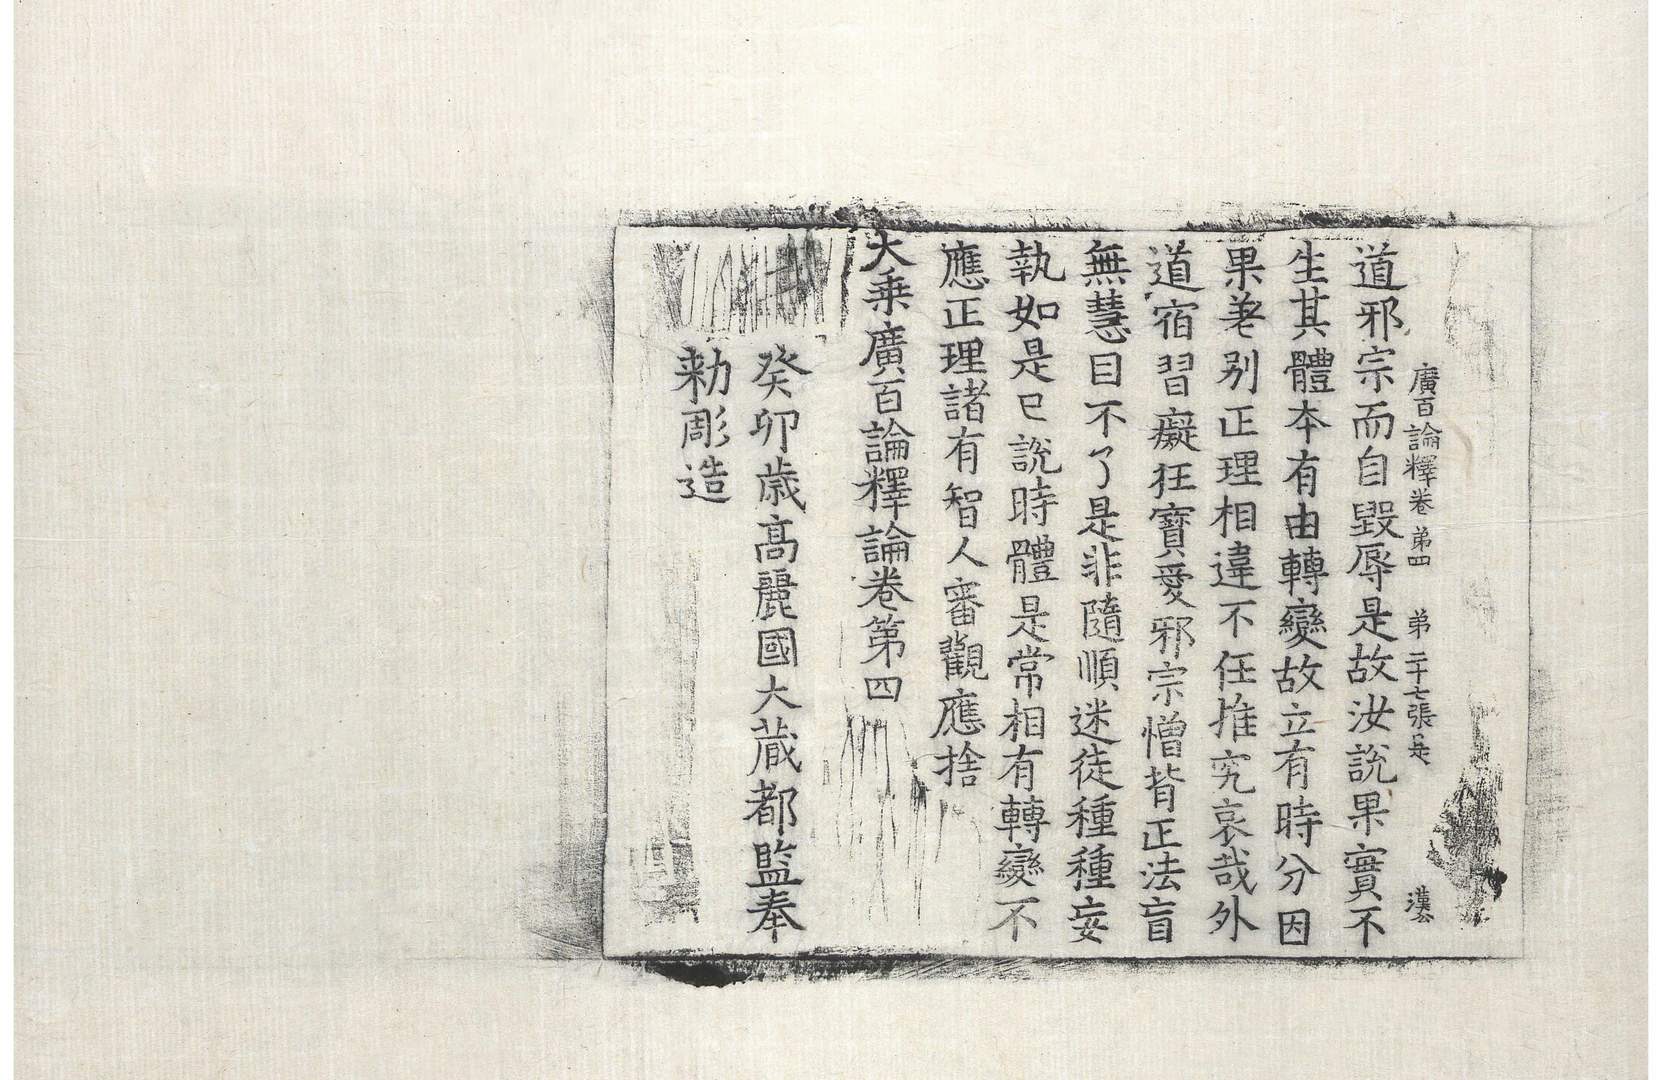 廣百論釋卷 第四 第二十七張 是 漢公
道邪宗而自毀辱是故汝說果實不
生其體本有由轉變故立有時分因
果差別正理相違不任推究哀哉外
道宿習癡狂寶愛邪宗憎背正法盲
無慧目不了是非隨順迷徒種種妄
執如是已說時體是常相有轉變不
應正理諸有智人審觀應捨
大乘廣百論釋論卷第四
癸卯歲高麗國大藏都監奉
勅彫造